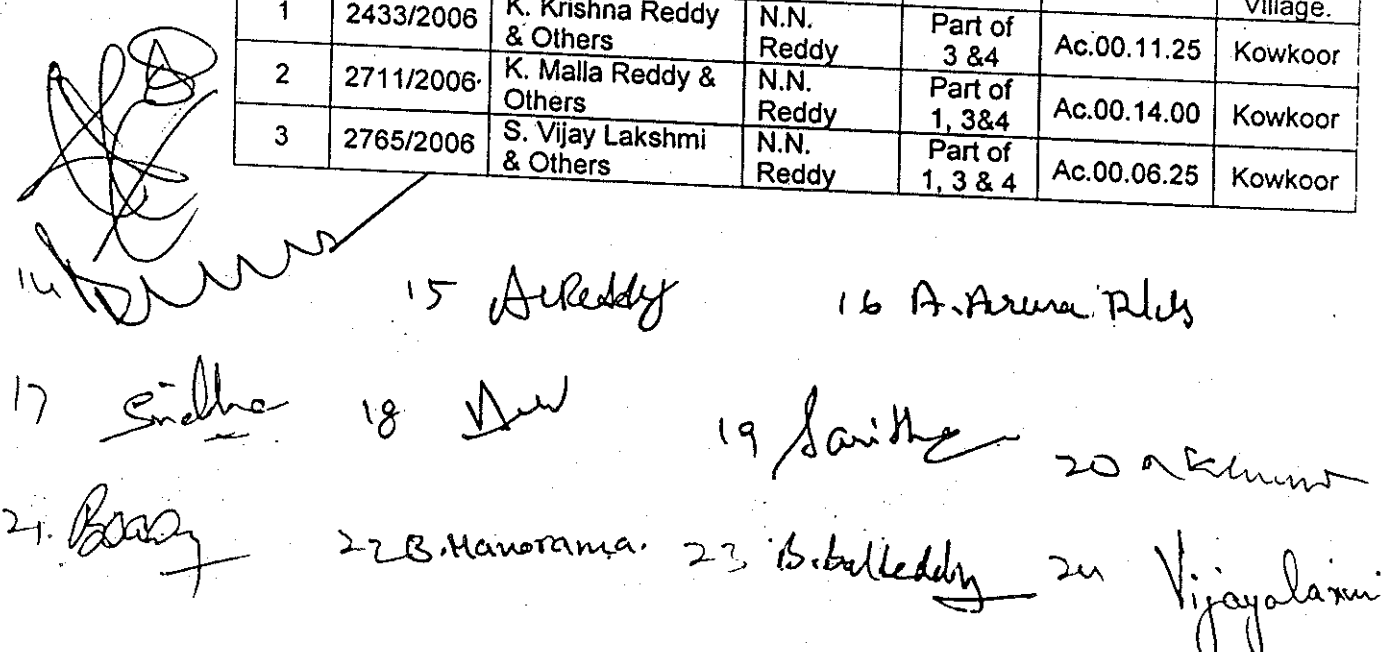 Village.
1 2433/2006 K. Krishna Reddy & Others N.N. Reddy Part of 3 &4 Ac.00.11.25 Kowkoor
2 2711/2006 K. Malla Reddy & Others N.N. Reddy Part of 1, 3&4 Ac.00.14.00 Kowkoor
3 2765/2006 S. Vijay Lakshmi & Others N.N. Reddy Part of 1, 3 & 4 Ac.00.06.25 Kowkoor
14 15 16 A. Aruna
17 18 19 Saritha 20
21. 22 B. Manorama. 23 B. balReddy 24 Vijayalaxmi